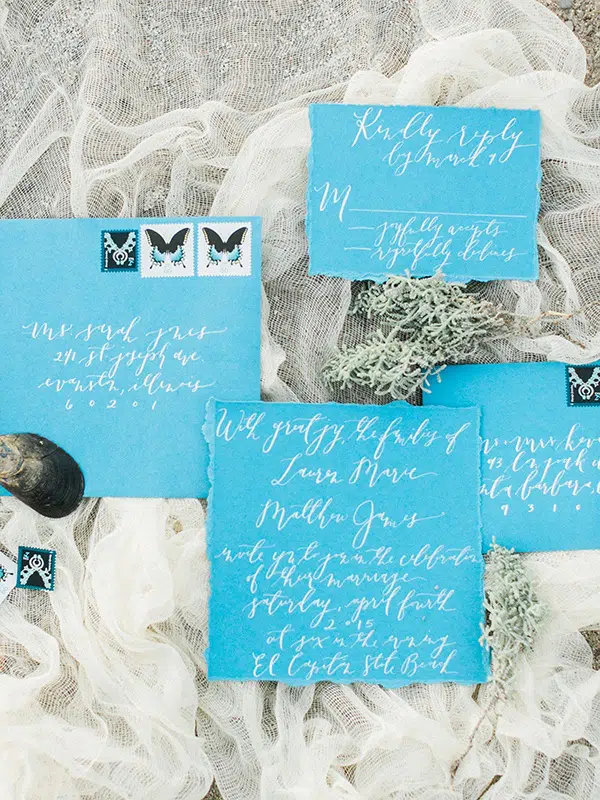 Kindly reply
by march 7
M
joyfully accepts
regretfully declines
ms. sarah jones
241 st. joseph ave.
evanston, illinois
60201
With gratitude, the families of
Lauren Marie
Matthew James
invite you to join in the celebration
of their marriage
saturday, april fourth
2015
at six in the evening
El Capitan State Beach
mrs.
93
barbara,
9310